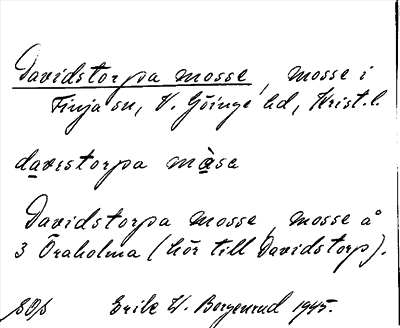 Davidstorpa mosse, mosse i
Finja sn, V. Göinge hd, Krist. l.
davistorpa màse
Davidstorpa mosse, mosse å
3 Öraholma (hör till Davidstorp).
Erik W. Borgenrud 1945.